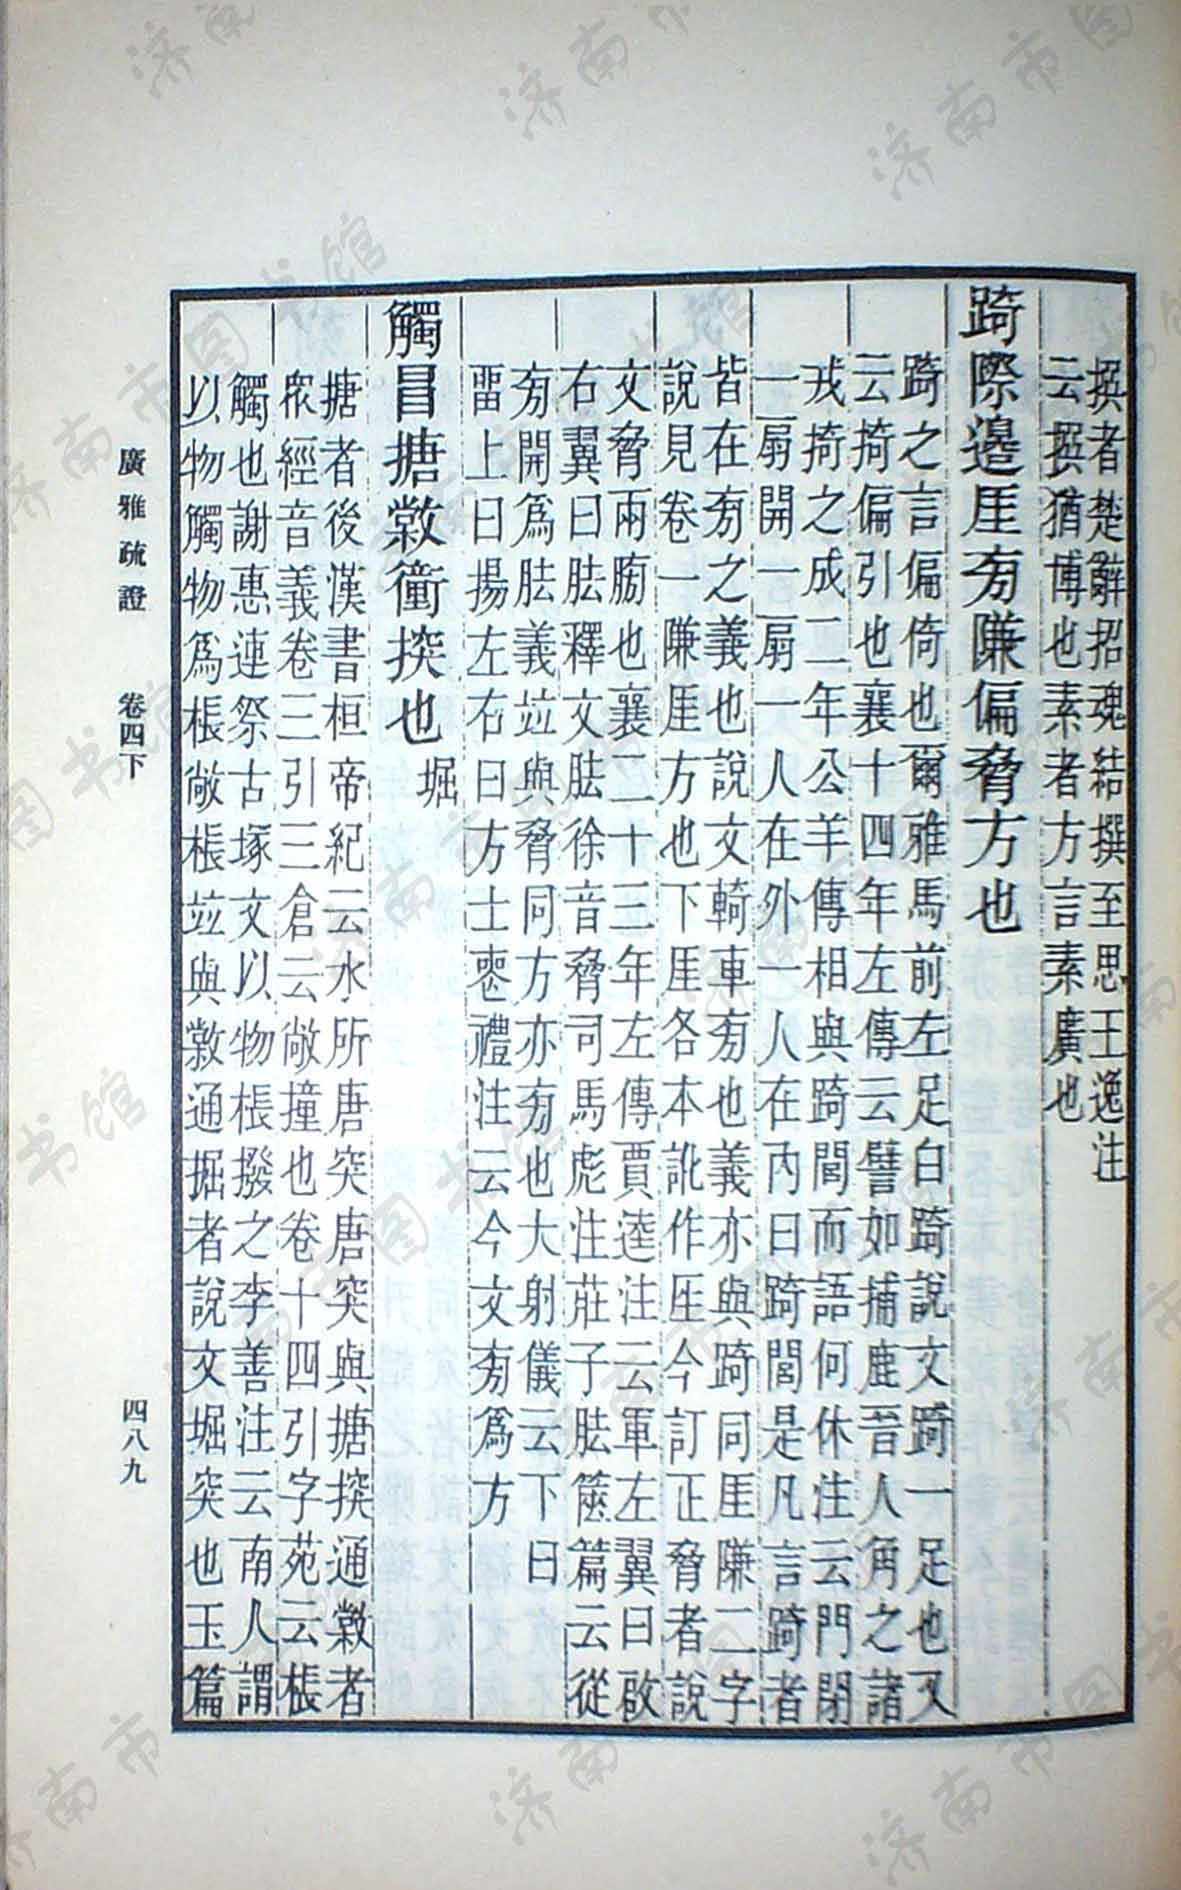 撰者楚辭招魂結撰至思王逸注
云撰猶博也素者方言素廣也
踦際邊厓㫄㡘偏脅方也
踦之言偏倚也爾雅馬前左足白踦說文踦一足也又
云掎偏引也襄十四年左傳云譬如捕鹿晉人角之諸
戎掎之成二年公羊傳相與踦閭而語何休注云門閉
一扇開一扇一人在外一人在內曰踦閭是凡言踦者
皆在㫄之義也說文輢車㫄也義亦與踦同厓㡘二字
說見卷一㡘厓方也下厓各本訛作厓今訂正脅者說
文脅兩膀也襄二十三年左傳賈逵注云軍左翼曰啟
右翼曰胠釋文胠徐音脅司馬彪注莊子胠篋篇云從
㫄開爲胠義竝與脅同方亦㫄也大射儀云下曰
畱上曰揚左右曰方士喪禮注云今文㫄爲方
觸冒搪㲂衝揬也 堀
搪者後漢書桓帝紀云水所唐突唐突與搪揬通㲂者
眾經音義卷三引三倉云敞撞也卷十四引字苑云棖
觸也謝惠連祭古塚文以物棖撥之李善注云南人謂
以物觸物爲棖敞棖竝與㲂通掘者說文堀突也玉篇
廣雅疏證 卷四下
四八九